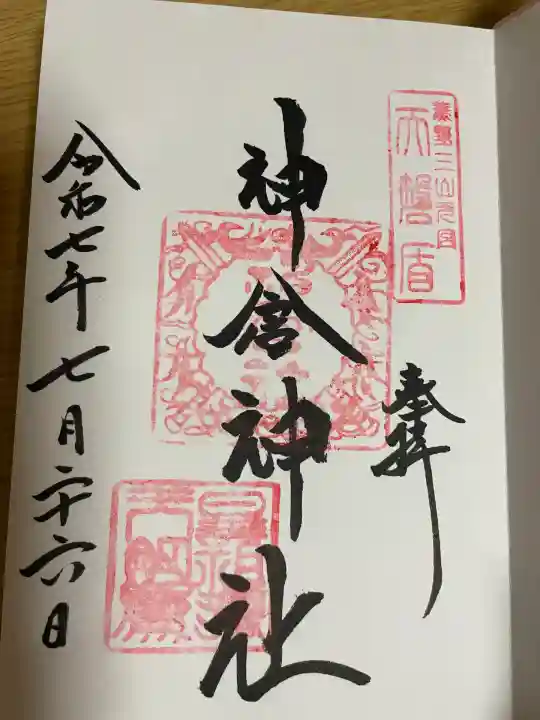 熊野三山元宮
天磐盾
奉拝
神倉神社
令和七年七月二十六日